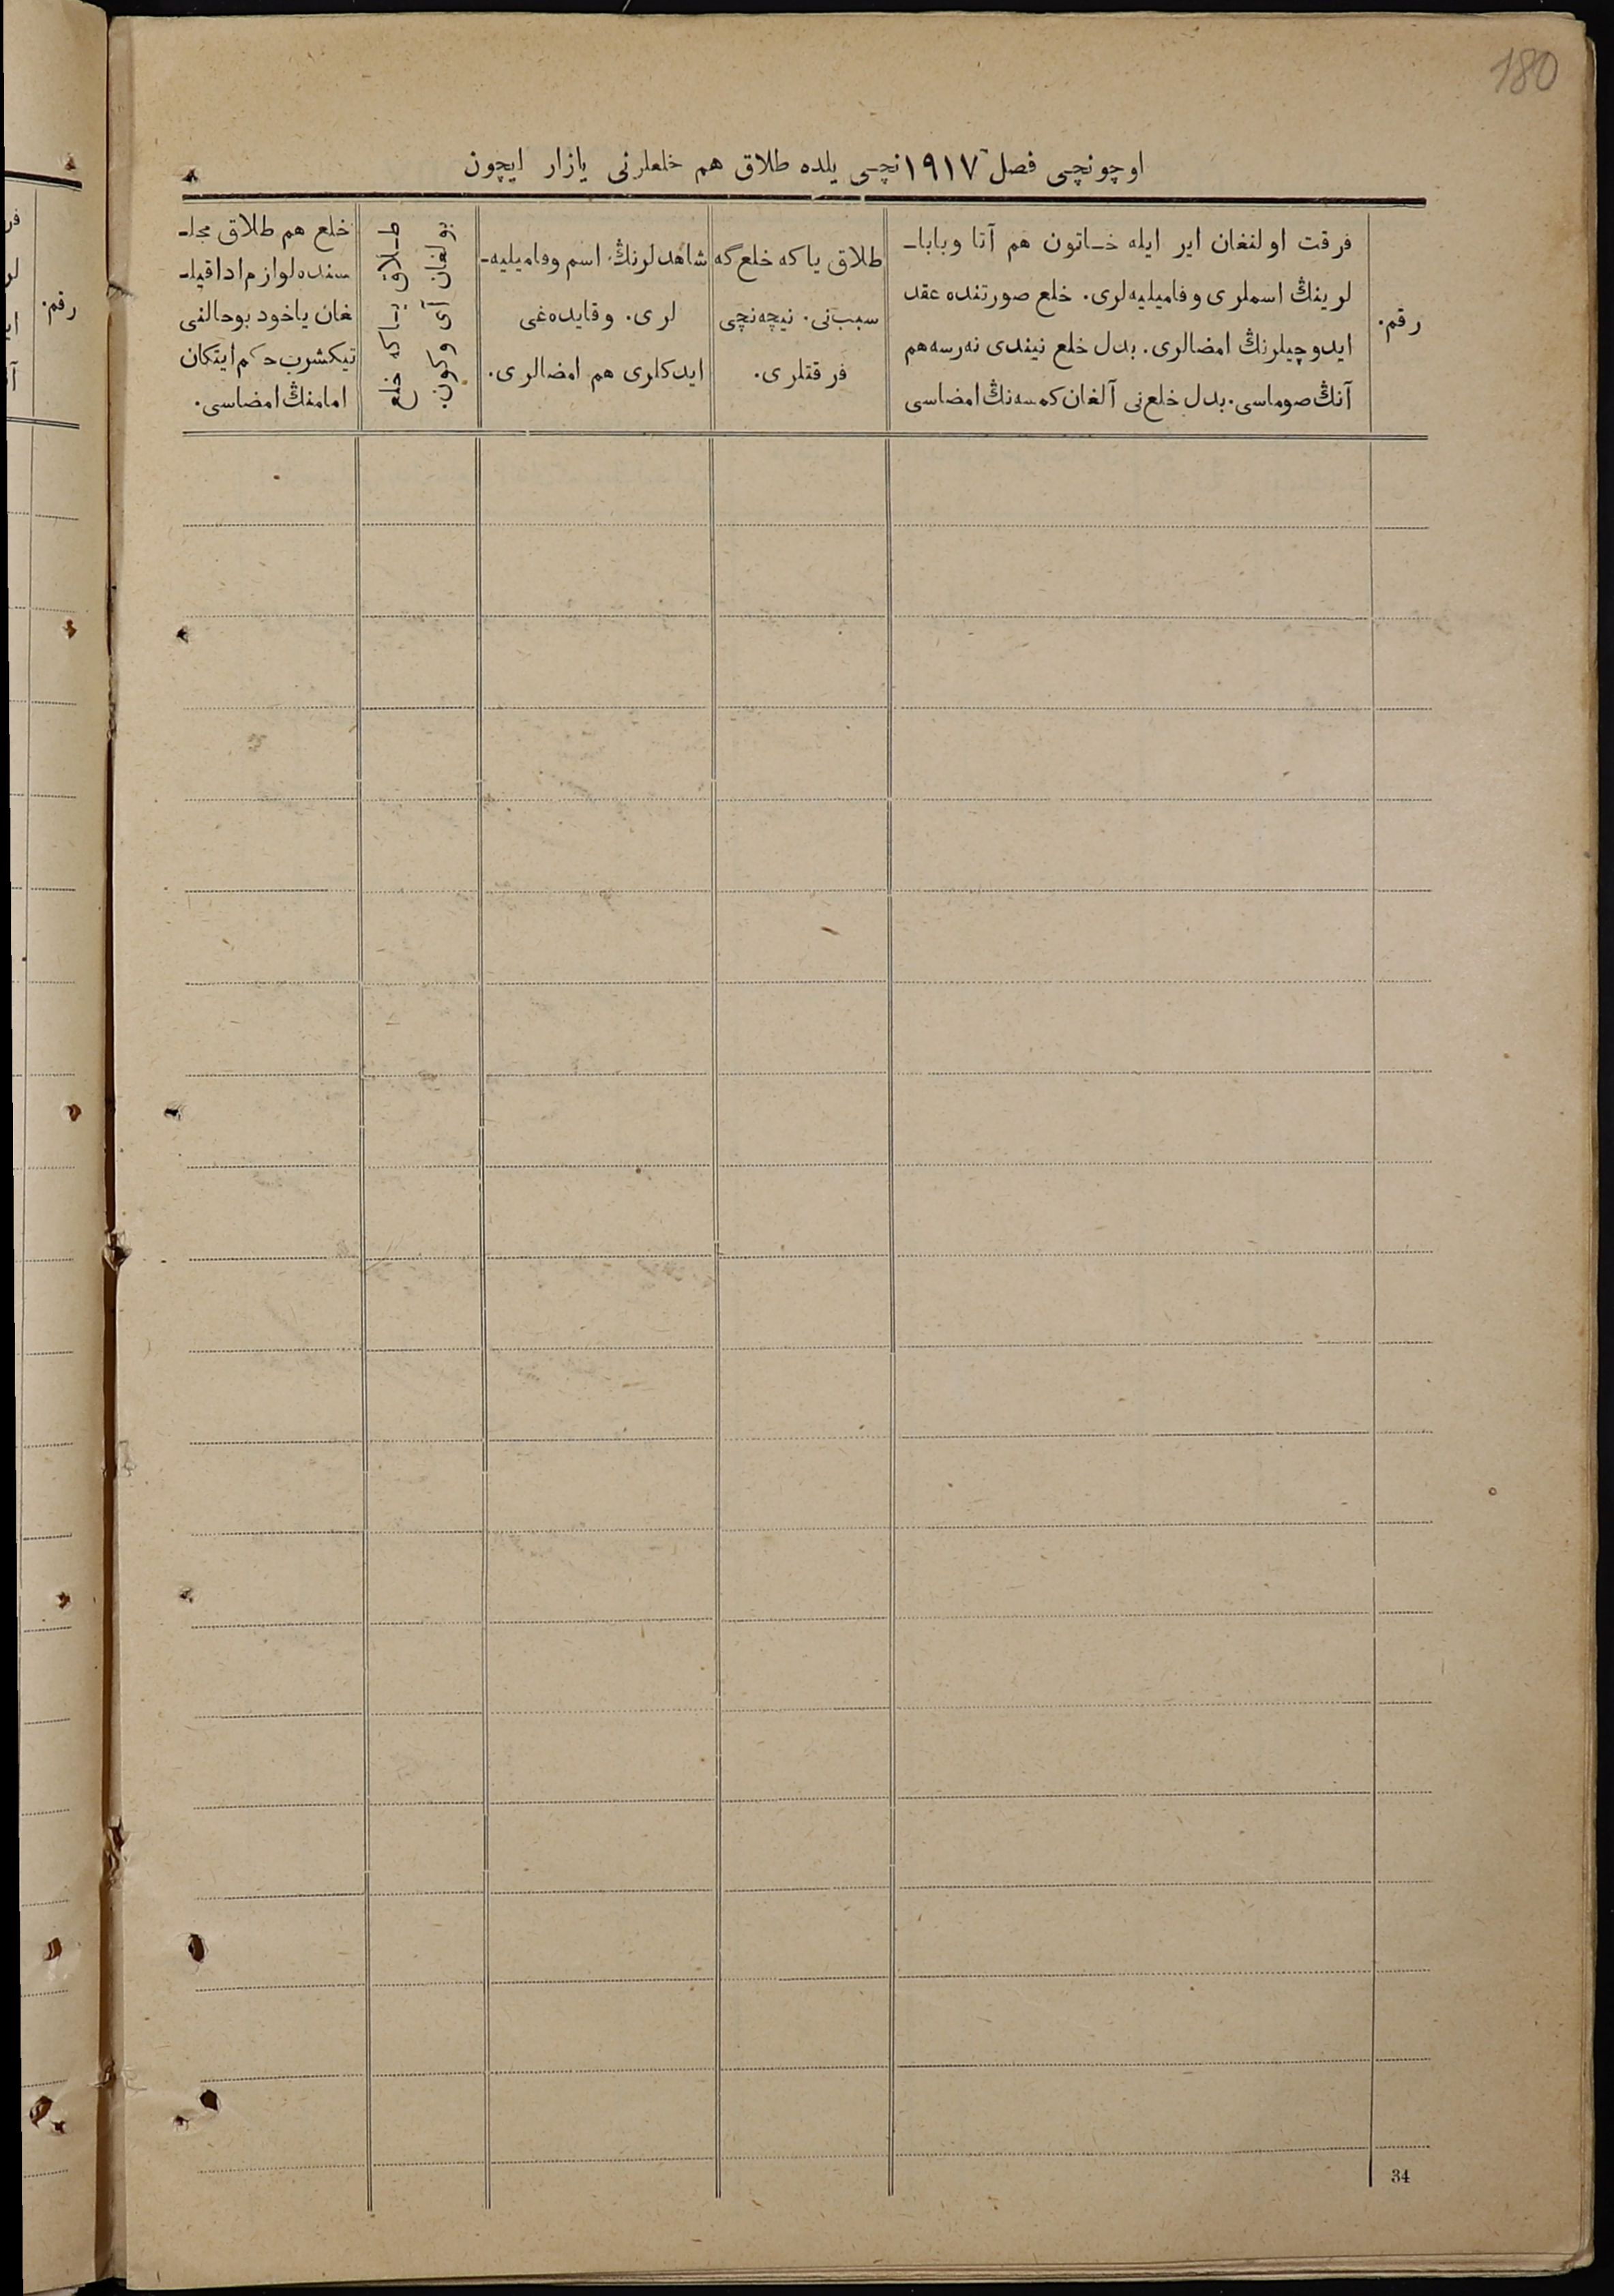 180
اوچونچی فصل ١٩١٧نچی یلده طلاق هم خلعلرنی یازار ایچون
رقم.
فرقت اولنغان ایر ایله خاتون هم آتا وبابا۔
لرینڭ اسملری وفامیلیه‌لری. خلع صورتنده عقد
ایدوچیلرنڭ امضالری. بدل خلع نیندی نه‌رسه‌هم
آنڭ صوماسی. بدل خلع‌نی آلغان کمسه‌نڭ امضاسی
طلاق یاکه خلع‌گه
سبب‌نی. نیچه‌نچی
فرقتلری.
شاهدلرنڭ اسم وفامیلیه۔
لری. وقایده‌غی
ایدکلری هم امضالری.
طلاق یاکه خلع
بولغان آی وکون.
خلع هم طلاق مجلـ
سنده‌لوازم‌اداقیلـ
غان یاخود بوحالنی
تیکشرب حکم ایتکان
امامنڭ امضاسی.
34
رقم.